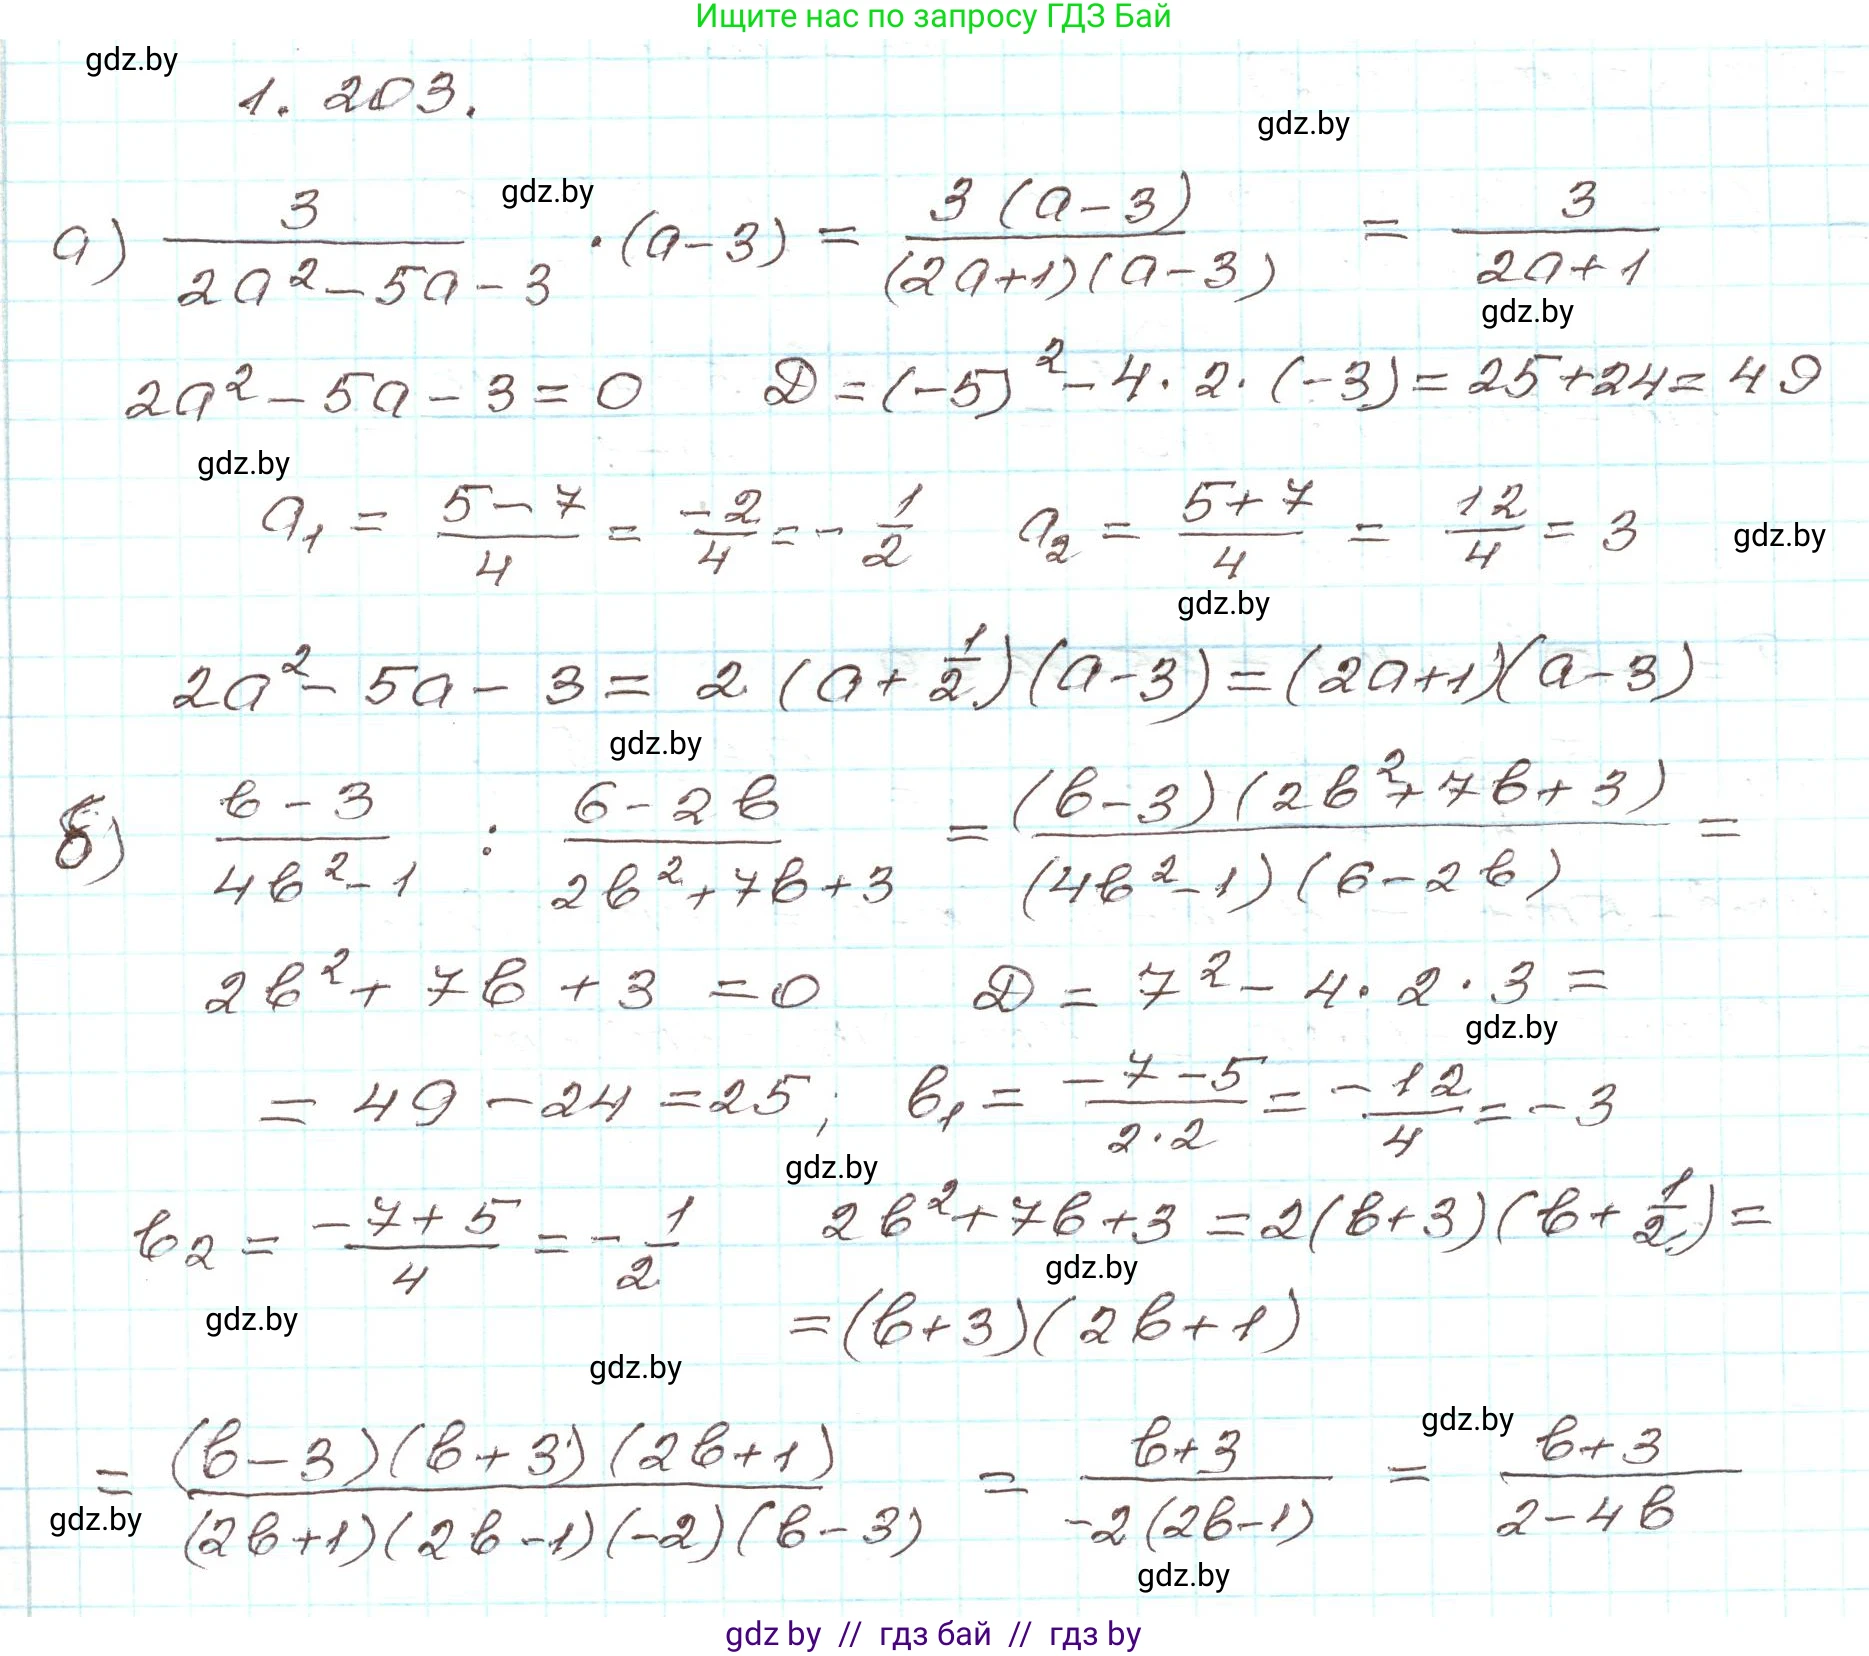 Ищите нас по запросу ГДЗ Бай
gdz.by
1. 203.
gdz.by
gdz.by
а) 3/(2a² − 5a − 3) · (a − 3) = 3(a − 3)/((2a+1)(a − 3)) = 3/(2a+1)
gdz.by
2a² − 5a − 3 = 0 D = (−5)² − 4 · 2 · (−3) = 25 + 24 = 49
gdz.by
a₁ = (5 − 7)/4 = −2/4 = − 1/2 a₂ = (5 + 7)/4 = 12/4 = 3
gdz.by
gdz.by
2a² − 5a − 3 = 2 (a + 1/2)(a − 3) = (2a+1)(a − 3)
gdz.by
б) (в − 3)/(4в² − 1) : (6 − 2в)/(2в² + 7в + 3) = (в − 3)(2в² + 7в + 3)/((4в² − 1)(6 − 2в)) =
2в² + 7в + 3 = 0 D = 7² − 4 · 2 · 3 =
gdz.by
= 49 − 24 = 25; в₁ = (−7 − 5)/(2 · 2) = −12/4 = −3
gdz.by
в₂ = (−7 + 5)/4 = − 1/2 2в² + 7в + 3 = 2(в + 3)(в + 1/2) =
gdz.by
gdz.by
= (в + 3)(2в + 1)
gdz.by
gdz.by
= (в − 3)(в + 3)(2в + 1)/((2в + 1)(2в − 1)(−2)(в − 3)) = (в + 3)/(−2(2в − 1)) = (в + 3)/(2 − 4в)
gdz.by
gdz.by
gdz by // гдз бай // гдз by